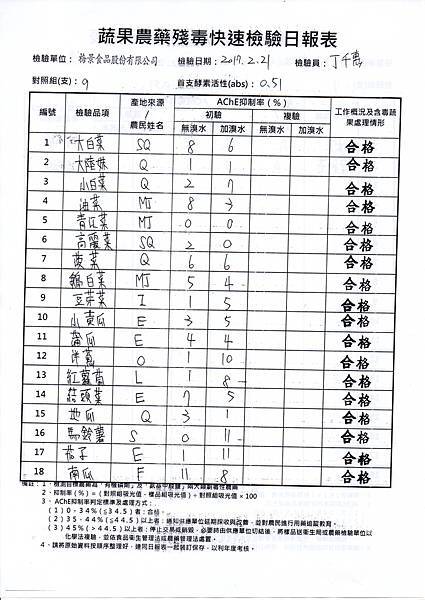 蔬果農藥殘毒快速檢驗日報表
檢驗單位： 裕景食品股份有限公司 檢驗日期：2017.2.21 檢驗員：丁千惠
對照組(支)：9 首支酵素活性(abs)：0.51
編號 檢驗品項 產地來源/農民姓名 AChE抑制率(%) 工作概況及含毒蔬果處理情形
初驗 複驗
無溴水 加溴水 無溴水 加溴水
1 大白菜 SQ 8 6 合格
2 大陸妹 Q 1 1 合格
3 小白菜 Q 2 7 合格
4 油菜 MJ 8 3 合格
5 青江菜 MJ 0 0 合格
6 高麗菜 SQ 2 0 合格
7 菠菜 Q 6 6 合格
8 鵝白菜 MJ 5 4 合格
9 豆芽菜 I 1 5 合格
10 小黃瓜 E 3 5 合格
11 蒲瓜 E 4 4 合格
12 洋蔥 O 1 10 合格
13 紅蘿蔔 L 1 8 合格
14 結頭菜 E 7 5 合格
15 地瓜 Q 3 1 合格
16 馬鈴薯 S 0 11 合格
17 茄子 E 1 11 合格
18 南瓜 F 11 8 合格
備註：1、檢測目標農藥為「有機磷劑」及「氨基甲酸鹽」兩大類劇毒性農藥
2、抑制率(%)=(對照組吸光值-樣品組吸光值)÷對照組吸光值×100
3、AChE抑制率判定標準及處理方式：
(1)0-34%(≦34.5)者：合格。
(2)35-44%(≦44.5)以上者：通知供應單位延期採收與改善，並對農民進行用藥追蹤教育。
(3)45%(>44.5)以上者：停止交易或銷毀，必要時由供應單位切結後，將樣品送衛生局或農藥檢驗單位以
化學法複驗，並依食品衛生管理法或農藥管理法處置。
4、請將原始資料按順序整理好，連同日報表一起裝訂保存，以利年度考核。